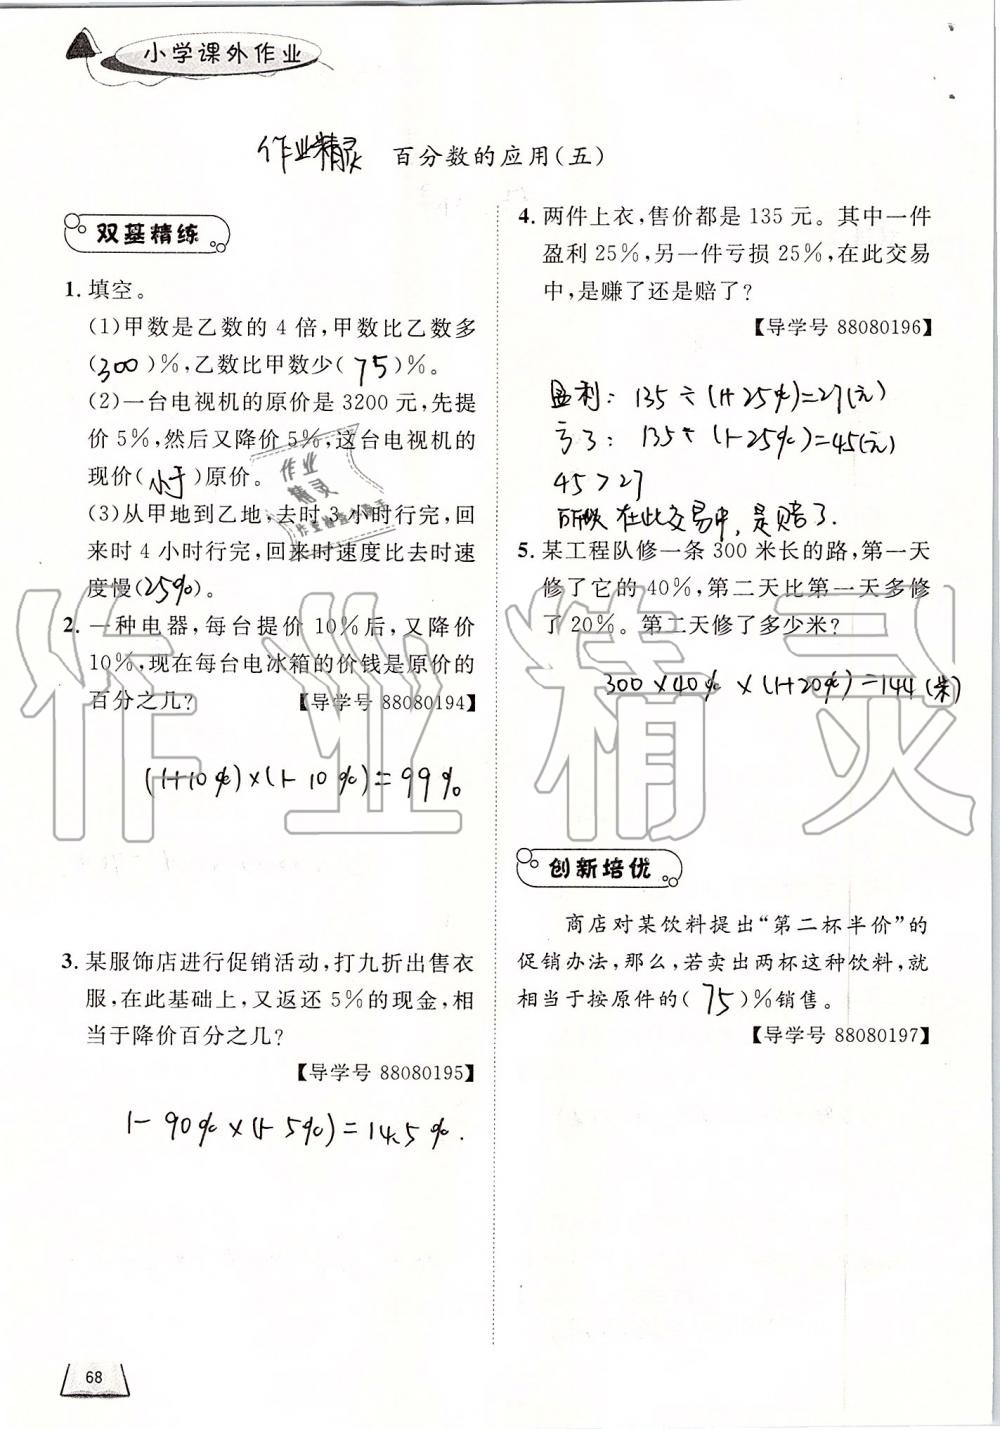 小学课外作业
作业精灵 百分数的应用(五)
双基精练
1. 填空。
(1)甲数是乙数的 4 倍,甲数比乙数多
(300)%,乙数比甲数少(75)%。
(2)一台电视机的原价是 3200 元,先提
价 5%,然后又降价 5%,这台电视机的
现价(小于)原价。
(3)从甲地到乙地,去时 3 小时行完,回
来时 4 小时行完,回来时速度比去时速
度慢(25%)。
2. 一种电器,每台提价 10%后,又降价
10%,现在每台电冰箱的价钱是原价的
百分之几?【导学号 88080194】
(1+10%)×(1-10%)=99%
3. 某服饰店进行促销活动,打九折出售衣
服,在此基础上,又返还 5%的现金,相
当于降价百分之几?
【导学号 88080195】
1-90%×(1-5%)=14.5%.
4. 两件上衣,售价都是 135 元。其中一件
盈利 25%,另一件亏损 25%,在此交易
中,是赚了还是赔了?
【导学号 88080196】
盈利: 135÷(1+25%)=27(元)
亏了: 135÷(1-25%)=45(元)
45>27
所以在此交易中,是赔了.
5. 某工程队修一条 300 米长的路,第一天
修了它的 40%,第二天比第一天多修
了 20%。第二天修了多少米?
300×40%×(1+20%)=144(米)
创新培优
商店对某饮料提出“第二杯半价”的
促销办法,那么,若卖出两杯这种饮料,就
相当于按原件的(75)%销售。
【导学号 88080197】
68
作业精灵
作业
精灵